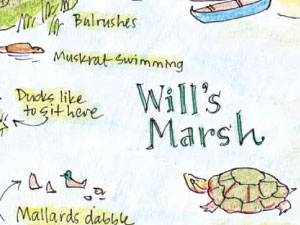 Bulrushes
Muskrat swimming
Ducks like
to sit here
Will's
Marsh
Mallards dabble